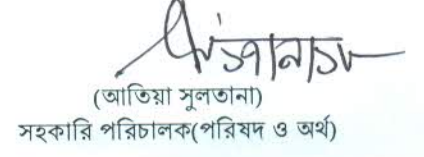 (আতিয়া সুলতানা)
সহকারি পরিচালক(পরিষদ ও অর্থ)